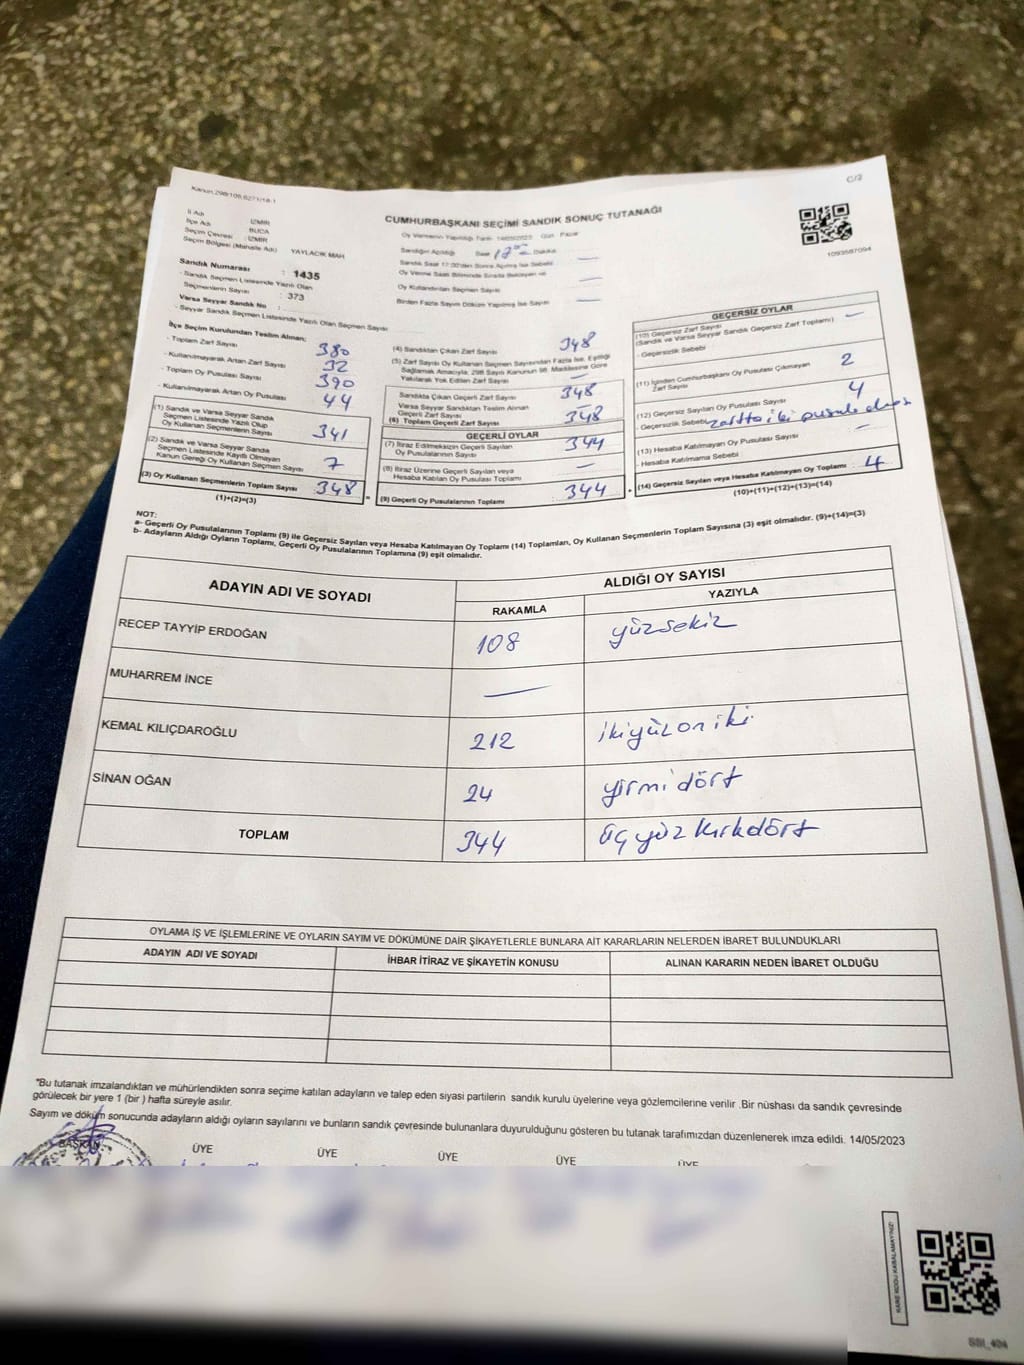 Kanun.298/105,6271/18-1
C/2
CUMHURBAŞKANI SEÇİMİ SANDIK SONUÇ TUTANAĞI
İl Adı : İZMİR
İlçe Adı : BUCA
Seçim Çevresi : İZMİR
Seçim Bölgesi (Mahalle Adı) YAYLACIK MAH
Sandık Numarası : 1435
- Sandık Seçmen Listesinde Yazılı Olan
Seçmenlerin Sayısı : 373
Varsa Seyyar Sandık No :
- Seyyar Sandık Seçmen Listesinde Yazılı Olan Seçmen Sayısı
Oy Vermenin Yapıldığı Tarih 14/05/2023 Gün Pazar
Sandığın Açıldığı Saat 17 Dakika
Sandık Saat 17:00'den Sonra Açılmış İse Sebebi —
Oy Verme Saati Bitiminde Sırada Bekleyen ve
Oy Kullandırılan Seçmen Sayısı —
Birden Fazla Sayım Döküm Yapılmış İse Sayısı —
1093587094
İlçe Seçim Kurulundan Teslim Alınan;
- Toplam Zarf Sayısı 380
- Kullanılmayarak Artan Zarf Sayısı 32
- Toplam Oy Pusulası Sayısı 390
- Kullanılmayarak Artan Oy Pusulası 44
(1) Sandık ve Varsa Seyyar Sandık
Seçmen Listesinde Yazılı Olup
Oy Kullanan Seçmenlerin Sayısı 341
(2) Sandık ve Varsa Seyyar Sandık
Seçmen Listesinde Kayıtlı Olmayan
Kanun Gereği Oy Kullanan Seçmen Sayısı 7
(3) Oy Kullanan Seçmenlerin Toplam Sayısı 348
(1)+(2)=(3)
(4) Sandıktan Çıkan Zarf Sayısı 348
(5) Zarf Sayısı Oy Kullanan Seçmen Sayısından Fazla İse, Eşitliği
Sağlamak Amacıyla, 298 Sayılı Kanunun 98. Maddesine Göre
Yakılarak Yok Edilen Zarf Sayısı —
Sandıkta Çıkan Geçerli Zarf Sayısı 348
Varsa Seyyar Sandıktan Teslim Alınan
Geçerli Zarf Sayısı —
(6) Toplam Geçerli Zarf Sayısı 348
GEÇERLİ OYLAR
(7) İtiraz Edilmeksizin Geçerli Sayılan
Oy Pusulalarının Sayısı 344
(8) İtiraz Üzerine Geçerli Sayılan veya
Hesaba Katılan Oy Pusulası Toplamı —
= (9) Geçerli Oy Pusulalarının Toplamı : 344
GEÇERSİZ OYLAR
(10) Geçersiz Zarf Sayısı
(Sandık ve Varsa Seyyar Sandık Geçersiz Zarf Toplamı) —
- Geçersizlik Sebebi
(11) İçinden Cumhurbaşkanı Oy Pusulası Çıkmayan
Zarf Sayısı 2
(12) Geçersiz Sayılan Oy Pusulası Sayısı 4
- Geçersizlik Sebebi zarfta iki pusula olması
(13) Hesaba Katılmayan Oy Pusulası Sayısı —
- Hesaba Katılmama Sebebi
+ (14) Geçersiz Sayılan veya Hesaba Katılmayan Oy Toplamı : 4
(10)+(11)+(12)+(13)=(14)
NOT:
a- Geçerli Oy Pusulalarının Toplamı (9) ile Geçersiz Sayılan veya Hesaba Katılmayan Oy Toplamı (14) Toplamları, Oy Kullanan Seçmenlerin Toplam Sayısına (3) eşit olmalıdır. (9)+(14)=(3)
b- Adayların Aldığı Oyların Toplamı, Geçerli Oy Pusulalarının Toplamına (9) eşit olmalıdır.
ADAYIN ADI VE SOYADI ALDIĞI OY SAYISI
RAKAMLA YAZIYLA
RECEP TAYYİP ERDOĞAN 108 yüzsekiz
MUHARREM İNCE —
KEMAL KILIÇDAROĞLU 212 ikiyüzoniki
SİNAN OĞAN 24 yirmidört
TOPLAM 344 üçyüzkırkdört
OYLAMA İŞ VE İŞLEMLERİNE VE OYLARIN SAYIM VE DÖKÜMÜNE DAİR ŞİKAYETLERLE BUNLARA AİT KARARLARIN NELERDEN İBARET BULUNDUKLARI
ADAYIN ADI VE SOYADI İHBAR İTİRAZ VE ŞİKAYETİN KONUSU ALINAN KARARIN NEDEN İBARET OLDUĞU
"Bu tutanak imzalandıktan ve mühürlendikten sonra seçime katılan adayların ve talep eden siyasi partilerin sandık kurulu üyelerine veya gözlemcilerine verilir .Bir nüshası da sandık çevresinde
görülecek bir yere 1 (bir ) hafta süreyle asılır.
Sayım ve döküm sonucunda adayların aldığı oyların sayılarını ve bunların sandık çevresinde bulunanlara duyurulduğunu gösteren bu tutanak tarafımızdan düzenlenerek imza edildi. 14/05/2023
BAŞKAN ÜYE ÜYE ÜYE ÜYE ÜYE
KARE KODU KARALAMAYINIZ!